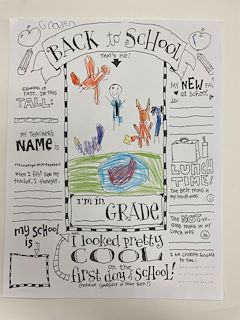 Graden
BACK to SCHOOL
THAT'S ME!
MY NEW PAL
at SCHOOL
TALL:
MY TEACHER'S
NAME is
WHEN I FIRST SAW MY
TEACHER, I THOUGHT:
LUNCH
TIME!
THE BEST THING IN
MY LUNCH WAS
THE NOT-SO-
GOOD THING IN MY
LUNCH WAS
I'M in
GRADE
my SCHOOL
is
I looked pretty
COOL
on the
first day of school!
(DRAW YOURSELF IN THAT BOX!)
I AM LOOKING FORWARD
TO THIS: